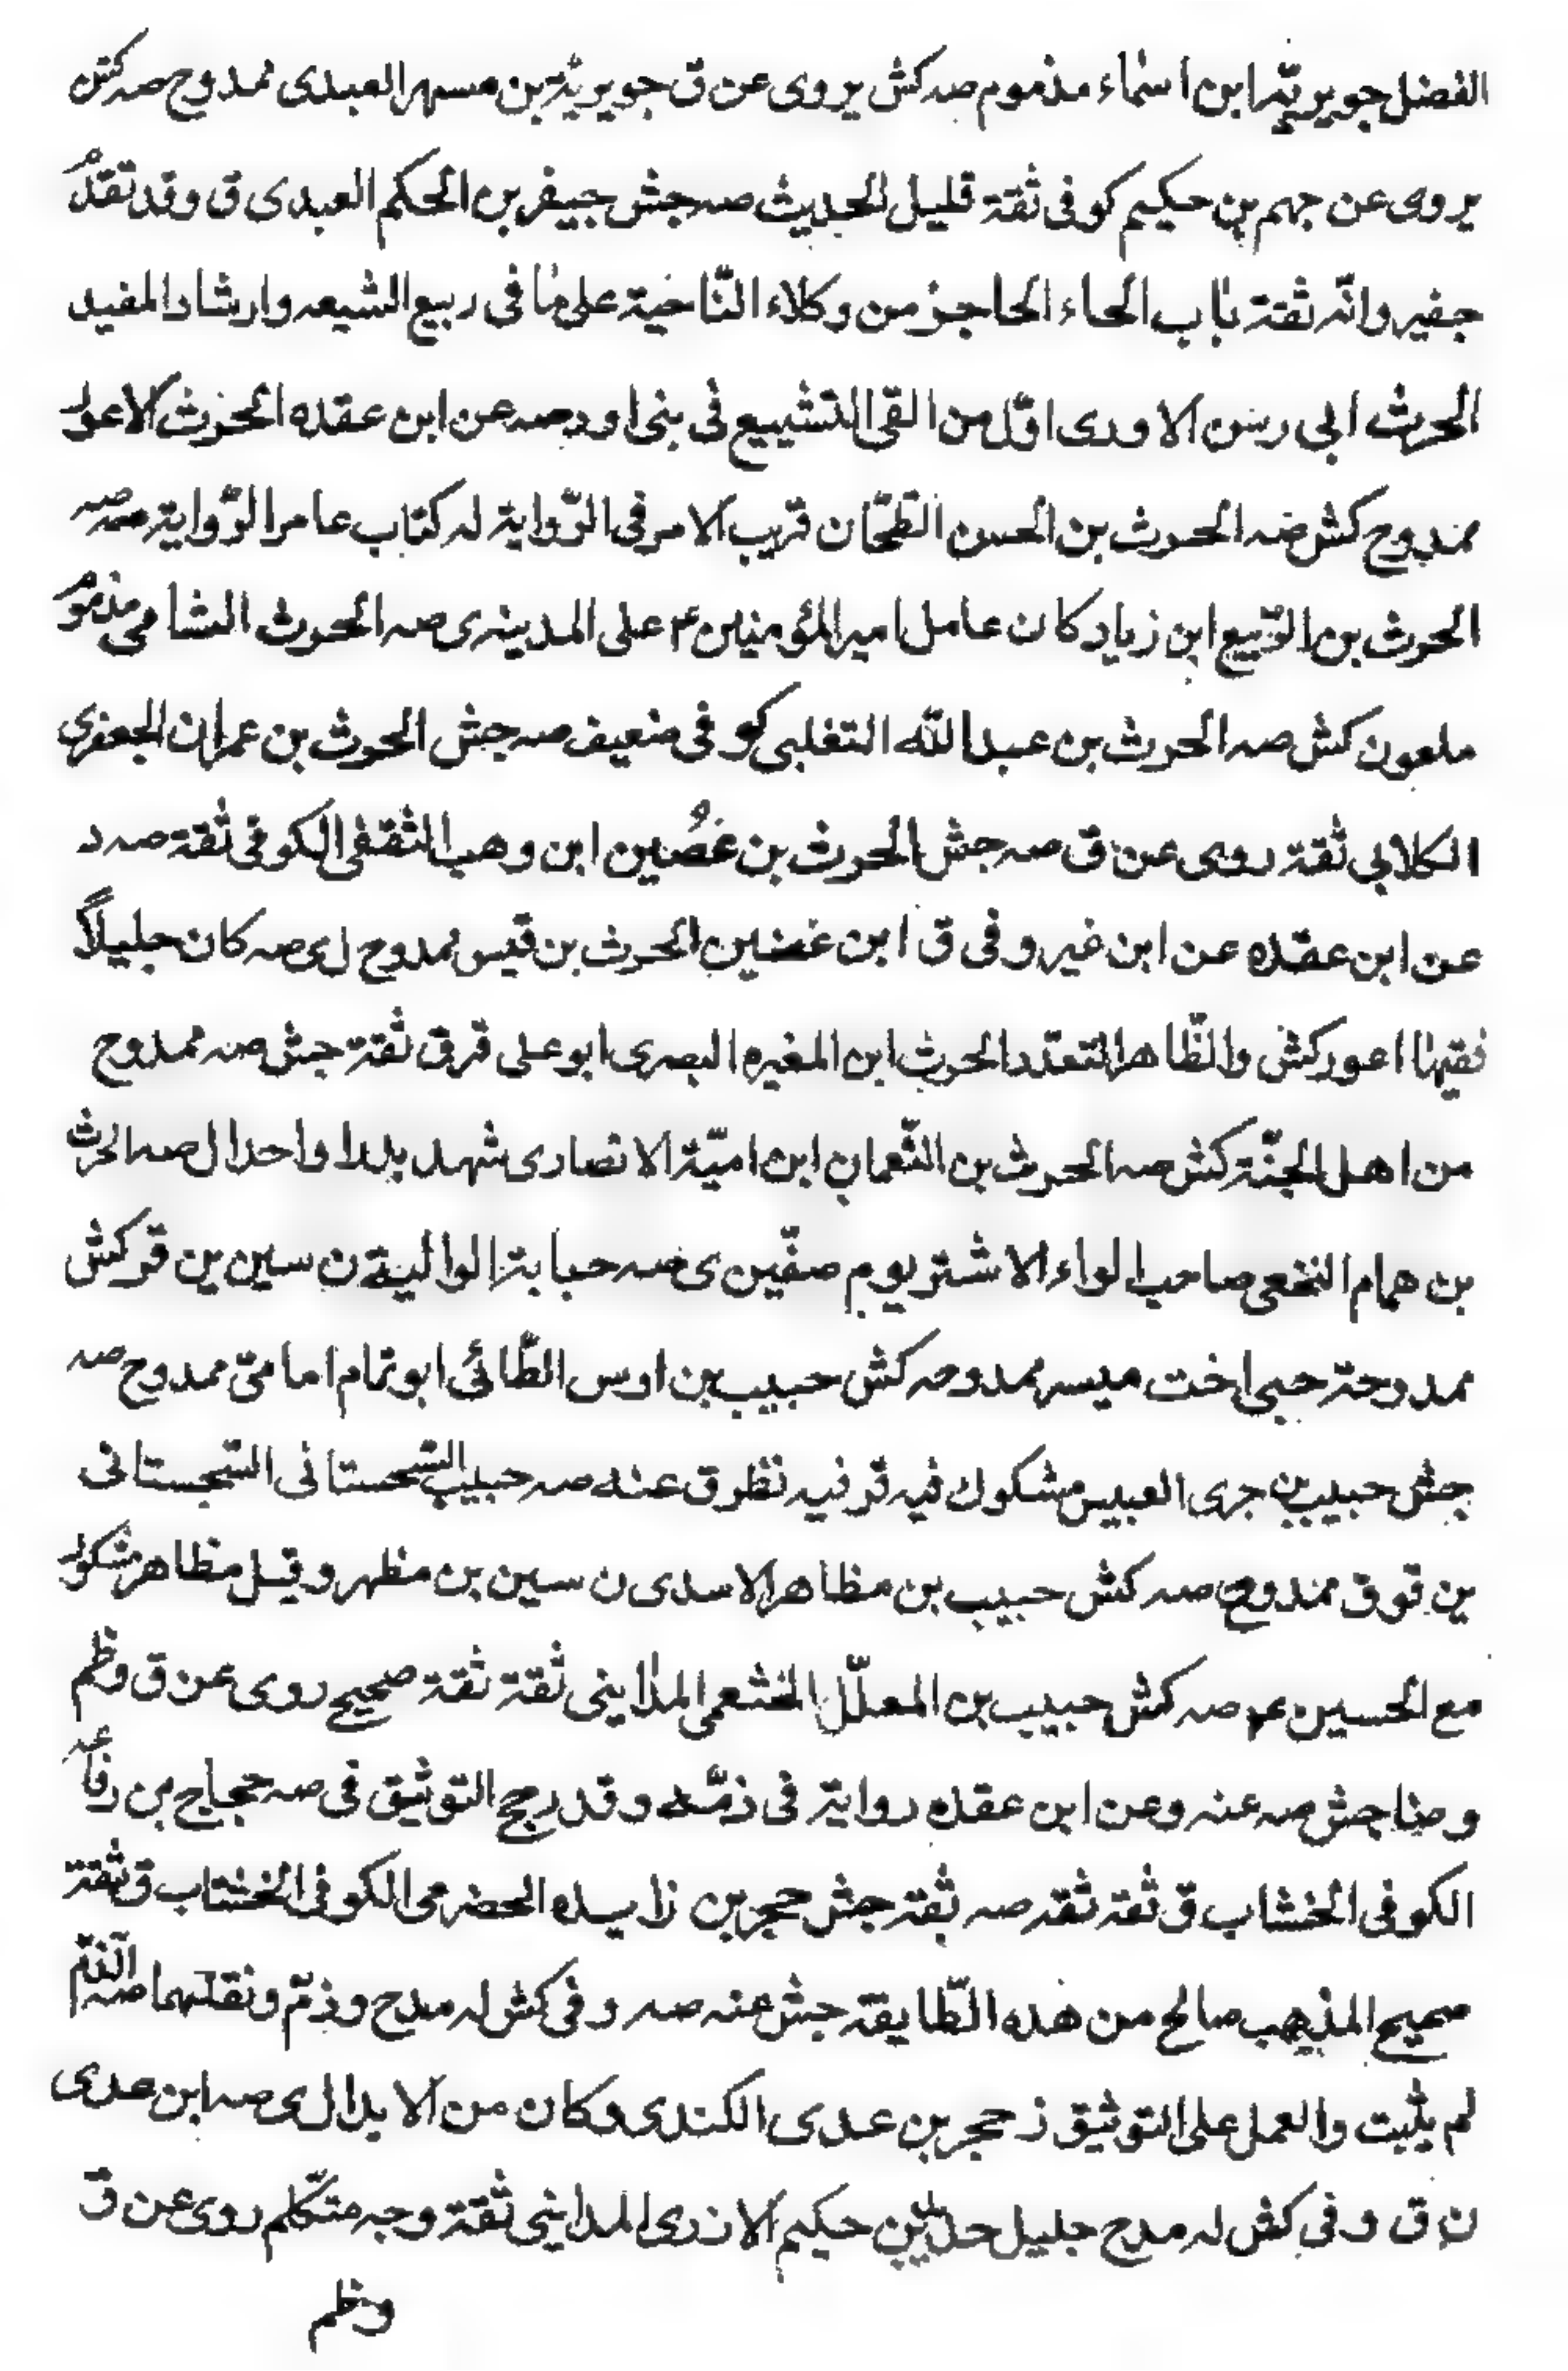 الفضل جويريّة ابن اسماء مذموم صه كش يروى عن ق جويرية بن مسهر العبدى ممدوح صه كش
يروى عن جهم بن حكيم كوفى ثقة قليل الحديث صه جش جيفر بن الحكم العبدى ق وقد تقدم
جفير وانّه ثقة باب الحاء الحاجز من وكلاء النّاحية على ما فى ربيع الشيعه وارشاد المفيد
الحرث ابى رسن الاودى اوّل من القى التشييع فى بنى اود صه عن ابن عقده الحرث الاعور
ممدوح كش صه الحرث بن الحسن الطّحّان قريب الامر فى الرّواية له كتاب عامر الرّواية صه
الحرث بن الرّبيع ابن زياد كان عامل امير المؤمنين ٤ على المدينه ى صه الحرث الشامى مذموم
ملعون كش صه الحرث بن عبد اللّه التغلبى كوفى ضعيف صه جش الحرث بن عمران الجعفرى
الكلابى ثقة روى عن ق صه جش الحرث بن غصُين ابن وهب الثقفى الكوفى ثقة صه د
عن ابن عقده عن ابن غير وفى ق ابن غضين الحرث بن قيس ممدوح ل ى صه كان جليلاً
فقيها اعور كش والظّاهر التعدّد الحرث ابن المغيره البصرى ابو على قر ق ثقة جش صه ممدوح
من اهل الجنّة كش صه الحرث بن النّعمان ابن اميّة الانصارى شهد بدرا واحدا ل صه الحرث
بن همام النخعى صاحب لواء الاشتر يوم صفّين ى صه حبابة الوالبية ن سين ين قر كش
ممدوحة حبى اخت ميسر ممدوحه كش حبيب بن اوس الطّائى ابو تمام امامىّ ممدوح صه
جش حبيب بن جرى العبيس مشكوك فيه قر فيه نظر ق عنه صه حبيب السّحستانى السّجستانى
ين قو ق ممدوح صه كش حبيب بن مظاهر الاسدى ن سين بن مظهر وقيل مظاهر مشكور
مع الحسين عم صه كش حبيب بن المعلّل الخثعمى المداينى ثقة ثقة صحيح روى عن ق وظم
وضا جش صه عنه وعن ابن عقده رواية فى ذمّه وقد رجح التوثيق فى صه حجاج بن رفاعه
الكوفى الخشاب ق ثقة ثقه صه ثقة جش حجر بن زايده الحضرمى الكوفى الخشاب ق ثقة
صحيح المذهب صالح من هذه الطّايفة جش عنه صه وفى كش له مدح وذمّ ونقلهما صه الذمّ
لم يثبت والعمل على التوثيق ز حجر بن عدى الكندى وكان من الابدال ى صه ابن عدى
ن ق وفى كش له مدح جليل حديد بن حكيم الازدى المداينى ثقة وجه متّكلم روى عن ق
وظم